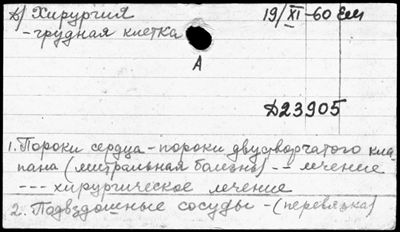 б) Хирургия 19/XI-60
-грудная клетка
А
Д23905
1. Пороки сердца - пороки двустворчатого кла-
пана (митральная болезнь) -- лечение
--- хирургическое лечение
2. Подвздошные сосуды - (перевязка)